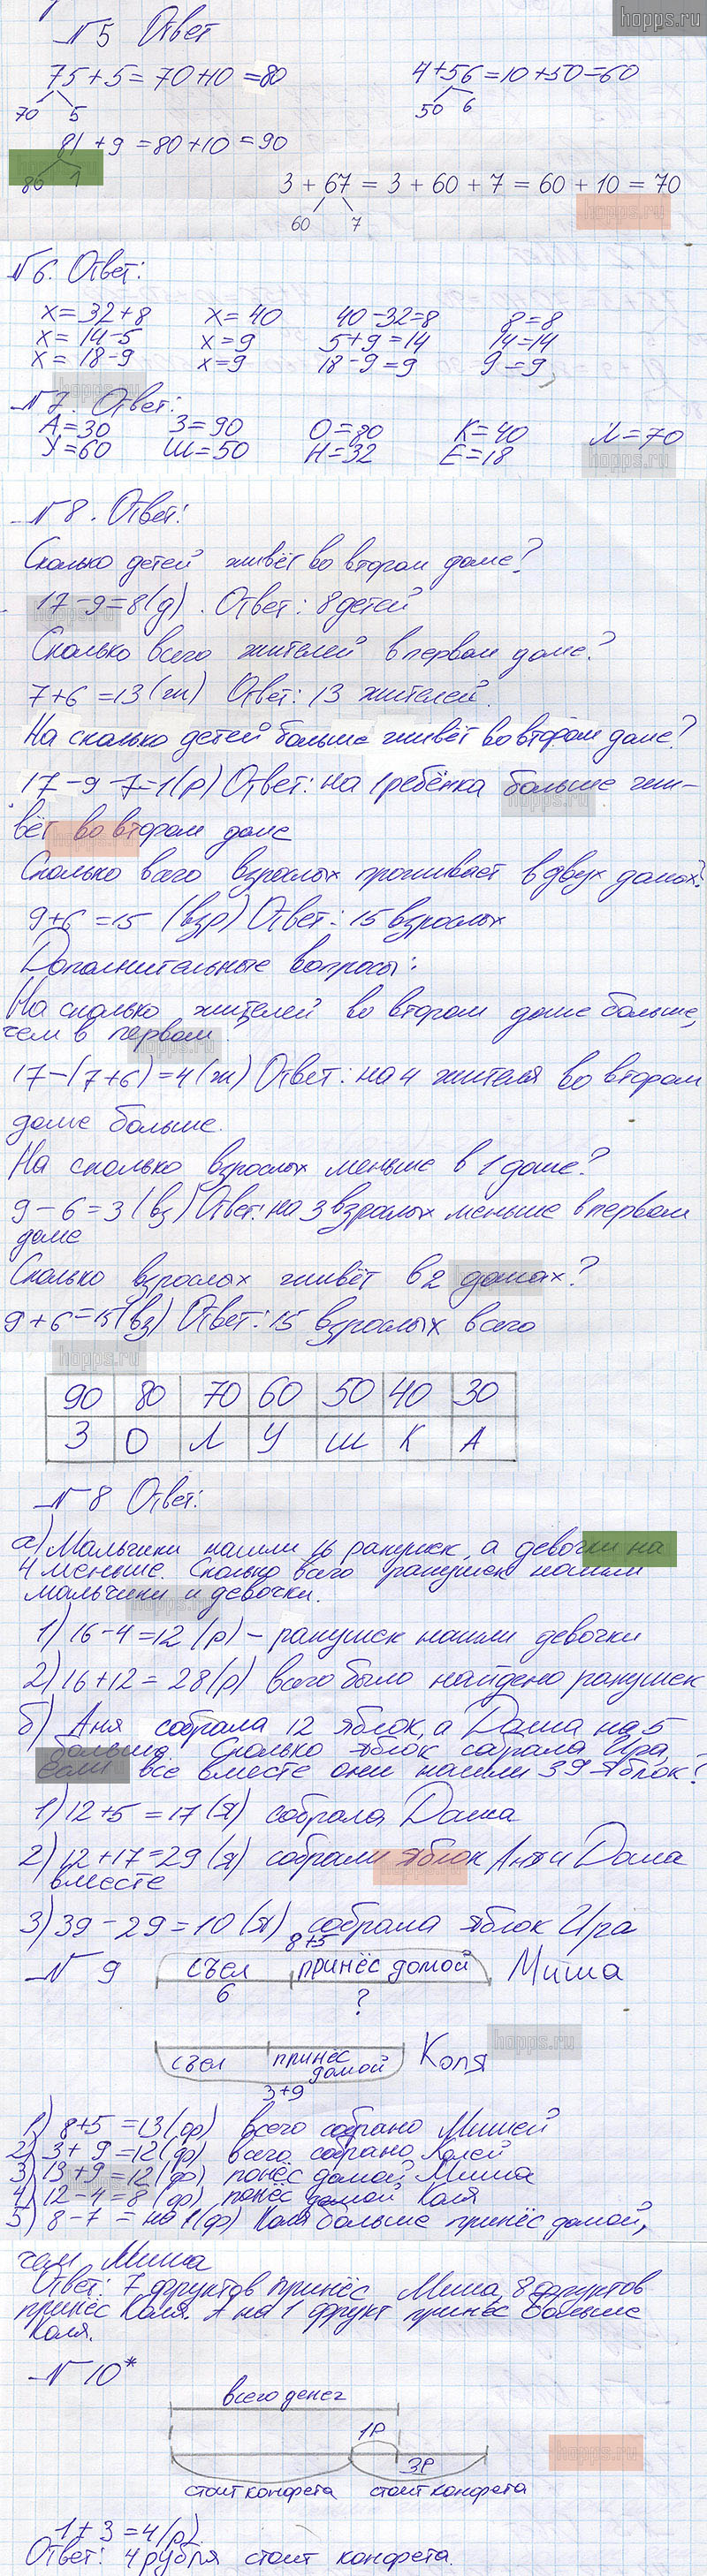 hopps.ru
№5 Ответ
75+5=70+10=80
4+56=10+50=60
70 5
50 6
81+9=80+10=90
80 1
3+67=3+60+7=60+10=70
60 7
hopps.ru
№6. Ответ:
х=32+8 х=40 40-32=8 8=8
х=14-5 х=9 5+9=14 14=14
х=18-9 х=9 18-9=9 9=9
hopps.ru
№7. Ответ:
А=30 З=90 О=80 К=40 Л=70
У=60 Ш=50 Н=32 Е=18
hopps.ru
№8. Ответ:
Сколько детей живёт во втором доме?
17-9=8(д). Ответ: 8 детей
Сколько всего жителей в первом доме?
7+6=13(ж) Ответ: 13 жителей.
На сколько детей больше живёт во втором доме?
17-9-7=1(р) Ответ: на 1 ребёнка больше жи-
вёт во втором доме
Сколько всего взрослых проживает в двух домах?
9+6=15 (взр) Ответ: 15 взрослых
Дополнительные вопросы:
На сколько жителей во втором доме больше,
чем в первом?
17-(7+6)=4(ж) Ответ: на 4 жителя во втором
доме больше.
На сколько взрослых меньше в 1 доме?
9-6=3(вз) Ответ: на 3 взрослых меньше в первом
доме
Сколько взрослых живёт в 2 домах?
9+6=15(вз) Ответ: 15 взрослых всего
hopps.ru
90 80 70 60 50 40 30
З О Л У Ш К А
№8 Ответ:
а) Мальчики нашли 16 ракушек, а девочки на
4 меньше. Сколько всего ракушек нашли
мальчики и девочки.
1) 16-4=12(р) - ракушек нашли девочки
2) 16+12=28(р) всего было найдено ракушек
б) Аня собрала 12 яблок, а Даша на 5
больше. Сколько яблок собрала Ира,
если все вместе они нашли 39 яблок?
1) 12+5=17(я) собрала Даша
2) 12+17=29(я) собрали яблок Аня и Даша
вместе
3) 39-29=10(я) собрала яблок Ира
8+5
№9 съел принёс домой Миша
6 ?
hopps.ru
съел принёс домой Коля
3+9
1) 8+5=13(фр) всего собрано Мишей
2) 3+9=12(ф) всего собрано Колей
3) 13+9=12(ф) понёс домой Миша
4) 12-4=8(ф) понёс домой Коля
5) 8-7=на 1(ф) Коля больше принёс домой,
чем Миша
Ответ: 7 фруктов принёс Миша, 8 фруктов
принёс Коля. на 1 фрукт принёс больше
Коля.
№10*
всего денег
1р
3р
hopps.ru
стоит конфета стоит конфета
1+3=4(р)
Ответ: 4 рубля стоит конфета.